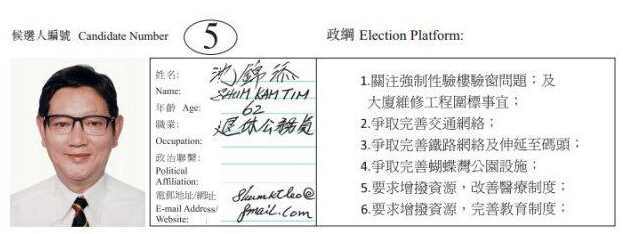 候選人編號 Candidate Number 5
政綱 Election Platform:
姓名: 沈錦添
Name: SHUM KAM TIM
年齡 Age: 62
職業: 退休公務員
Occupation:
政治聯繫:
Political
Affiliation:
電郵地址/網址 Shumktleo@
E-mail Address/ gmail.com
Website:
1.關注強制性驗樓驗窗問題；及
大廈維修工程圍標事宜；
2.爭取完善交通網絡；
3.爭取完善鐵路網絡及伸延至碼頭；
4.爭取完善蝴蝶灣公園設施；
5.要求增撥資源，改善醫療制度；
6.要求增撥資源，完善教育制度；